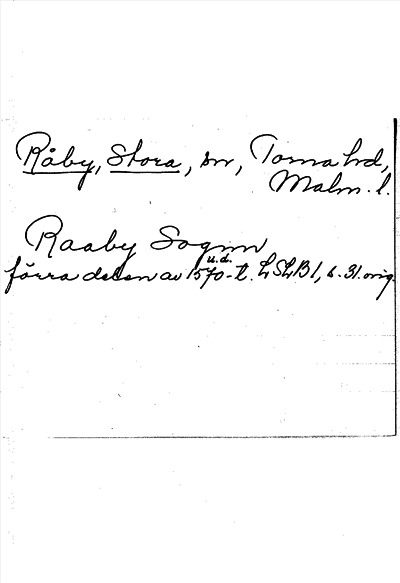 Råby, Stora, sn, Torna hd,
Malm. l.
Raaby Sognn
u.d.
förra delen av 1570-t. LSLB 1, s. 31. orig.